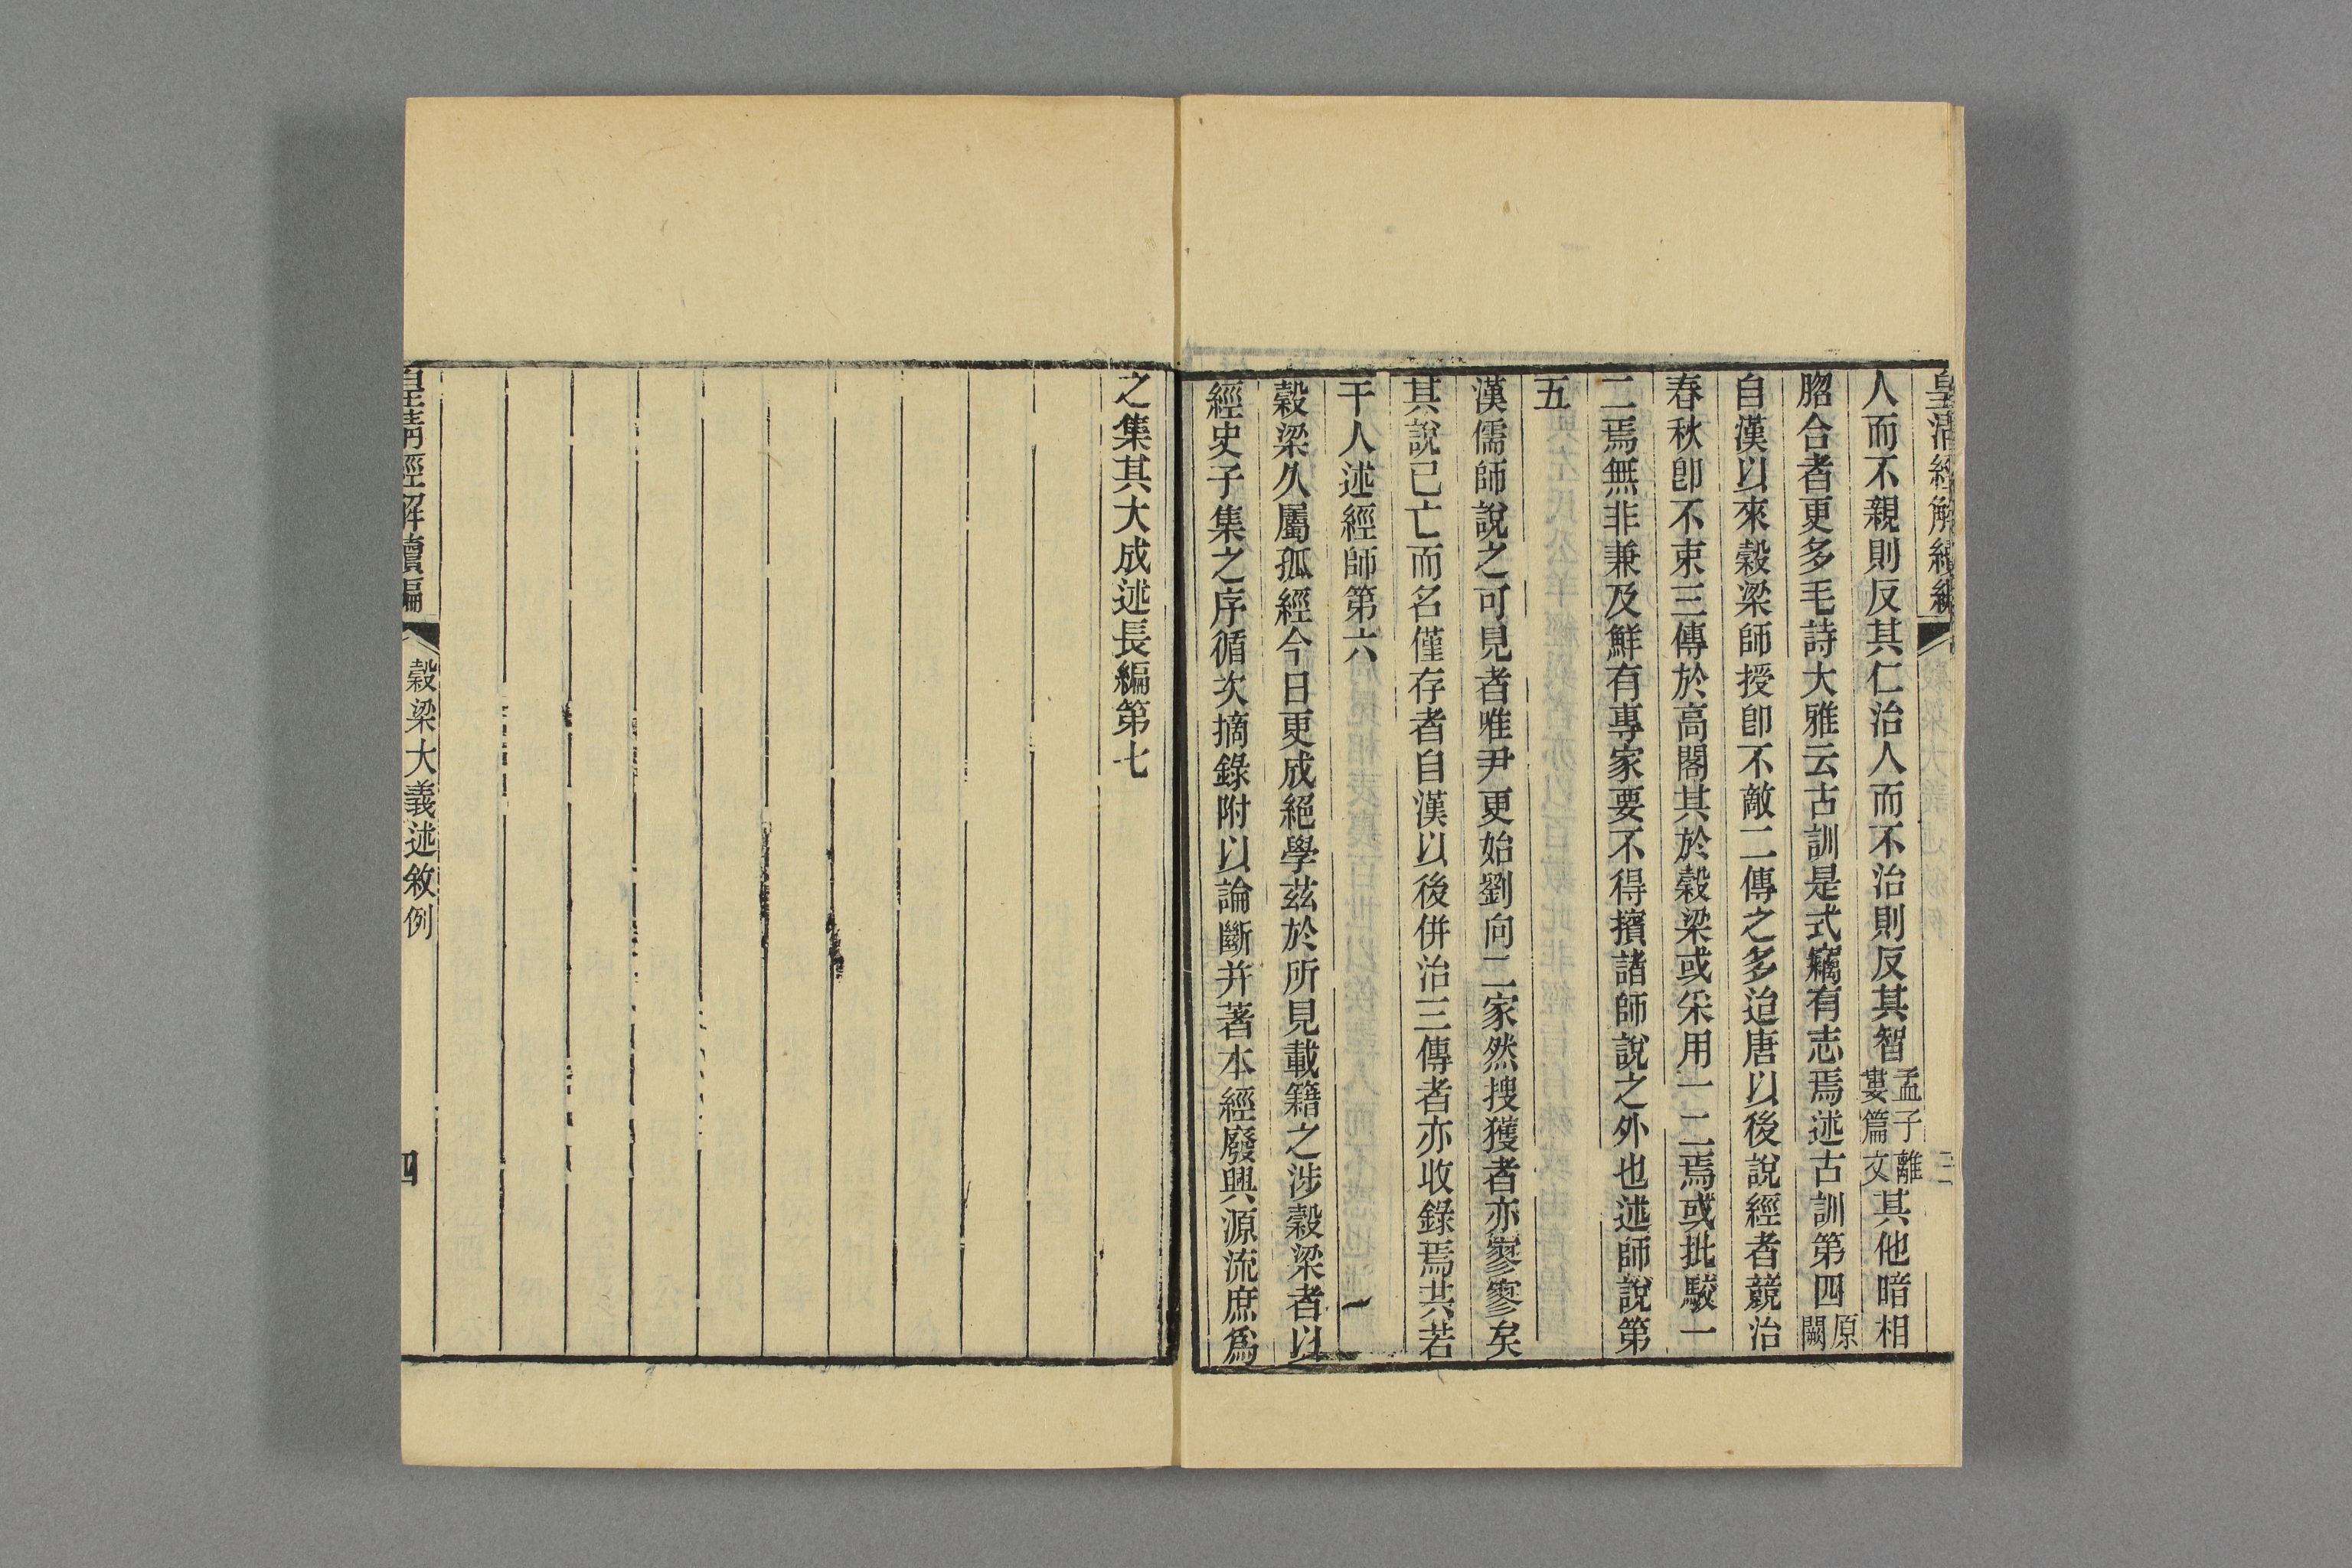 皇清經解續編
三
人而不親則反其仁治人而不治則反其智孟子離婁篇文其他暗相
脗合者更多毛詩大雅云古訓是式竊有志焉述古訓第四原闕
自漢以來穀梁師授卽不敵二傳之多迨唐以後說經者競治
春秋卽不束三傳於高閣其於穀梁或采用一二焉或批駮一
二焉無非兼及鮮有專家要不得擯諸師說之外也述師說第
五
漢儒師說之可見者唯尹更始劉向二家然搜獲者亦寥寥矣
其說已亡而名僅存者自漢以後併治三傳者亦收錄焉共若
干人述經師第六
穀梁久屬孤經今日更成絕學茲於所見載籍之涉穀梁者以
經史子集之序循次摘錄附以論斷并著本經廢興源流庶爲
之集其大成述長編第七
皇清經解續編
穀梁大義述敘例
四